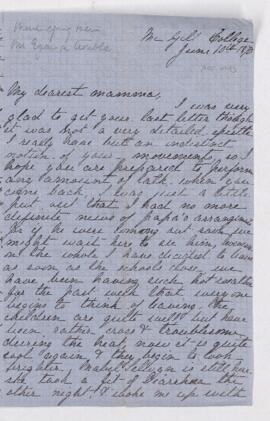 McGill College
June 10th
My dearest mamma,
I was very
glad to get your last letter though
it was not a very detailed epistle
I really have but an indistinct
notion of your movements so I
hope you are prepared to perform
any amount of talk when you
come back. I was just a little
put out that I had no more
definite news of papa's
as if he were coming out soon we
might wait here to see him, however
on the whole I have decided to leave
as soon as the schools close, we
have been having such hot weather
for the past week that every one
begins to think of leaving. the
children are quite well but have
been rather cross & troublesome
during the heat, now it is quite
cool again & they begin to look
brighter. Mabel is still here
she took a fit of Diarrhea the
other night & woke me up with